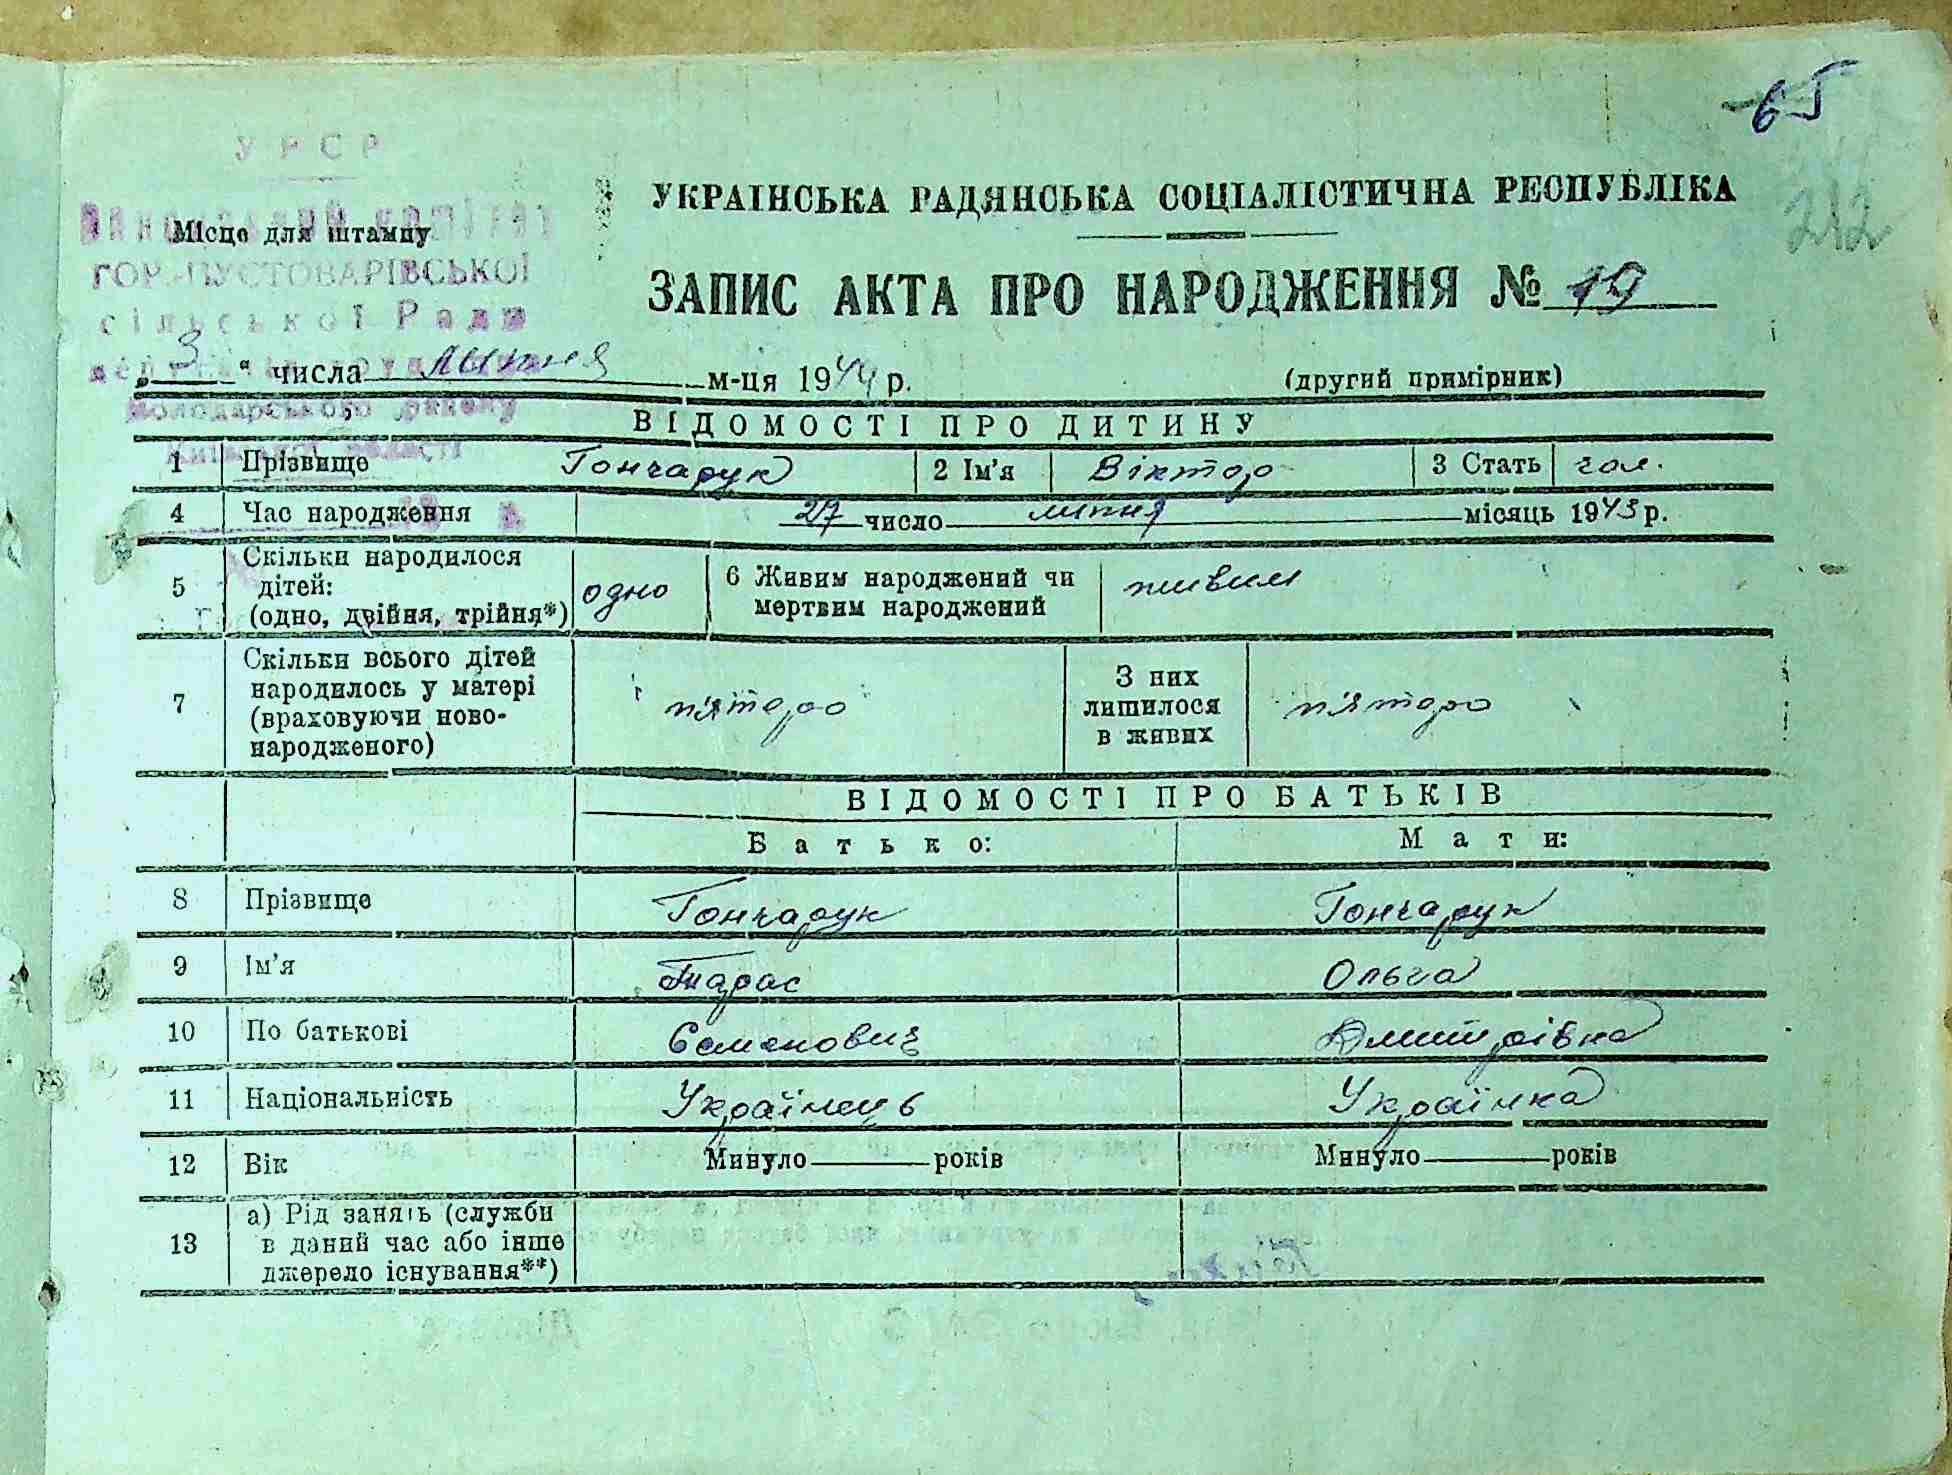 65
212
УРСР
Виконавчий комітет
Місце для штампу
ГОР.-ПУСТОВАРІВСЬКОЇ
сільської Ради
Володарського району
Київської області
УКРАЇНСЬКА РАДЯНСЬКА СОЦІАЛІСТИЧНА РЕСПУБЛІКА
ЗАПИС АКТА ПРО НАРОДЖЕННЯ № 19
„3“ числа липня м-ця 1944 р. (другий примірник)
ВІДОМОСТІ ПРО ДИТИНУ
1 Прізвище Гончарук 2 Ім'я Віктор 3 Стать чол.
4 Час народження 27 число липня місяць 1943 р.
5 Скільки народилося дітей: (одно, двійня, трійня*) одно 6 Живим народжений чи мертвим народжений живим
7 Скільки всього дітей народилось у матері (враховуючи ново-народженого) п'ятеро З них лишилося в живих п'ятеро
ВІДОМОСТІ ПРО БАТЬКІВ
Батько: Мати:
8 Прізвище Гончарук Гончарук
9 Ім'я Тарас Ольга
10 По батькові Семенович Дмитрівна
11 Національність Українець Українка
12 Вік Минуло років Минуло років
13 а) Рід занять (служби в даний час або інше джерело існування**)